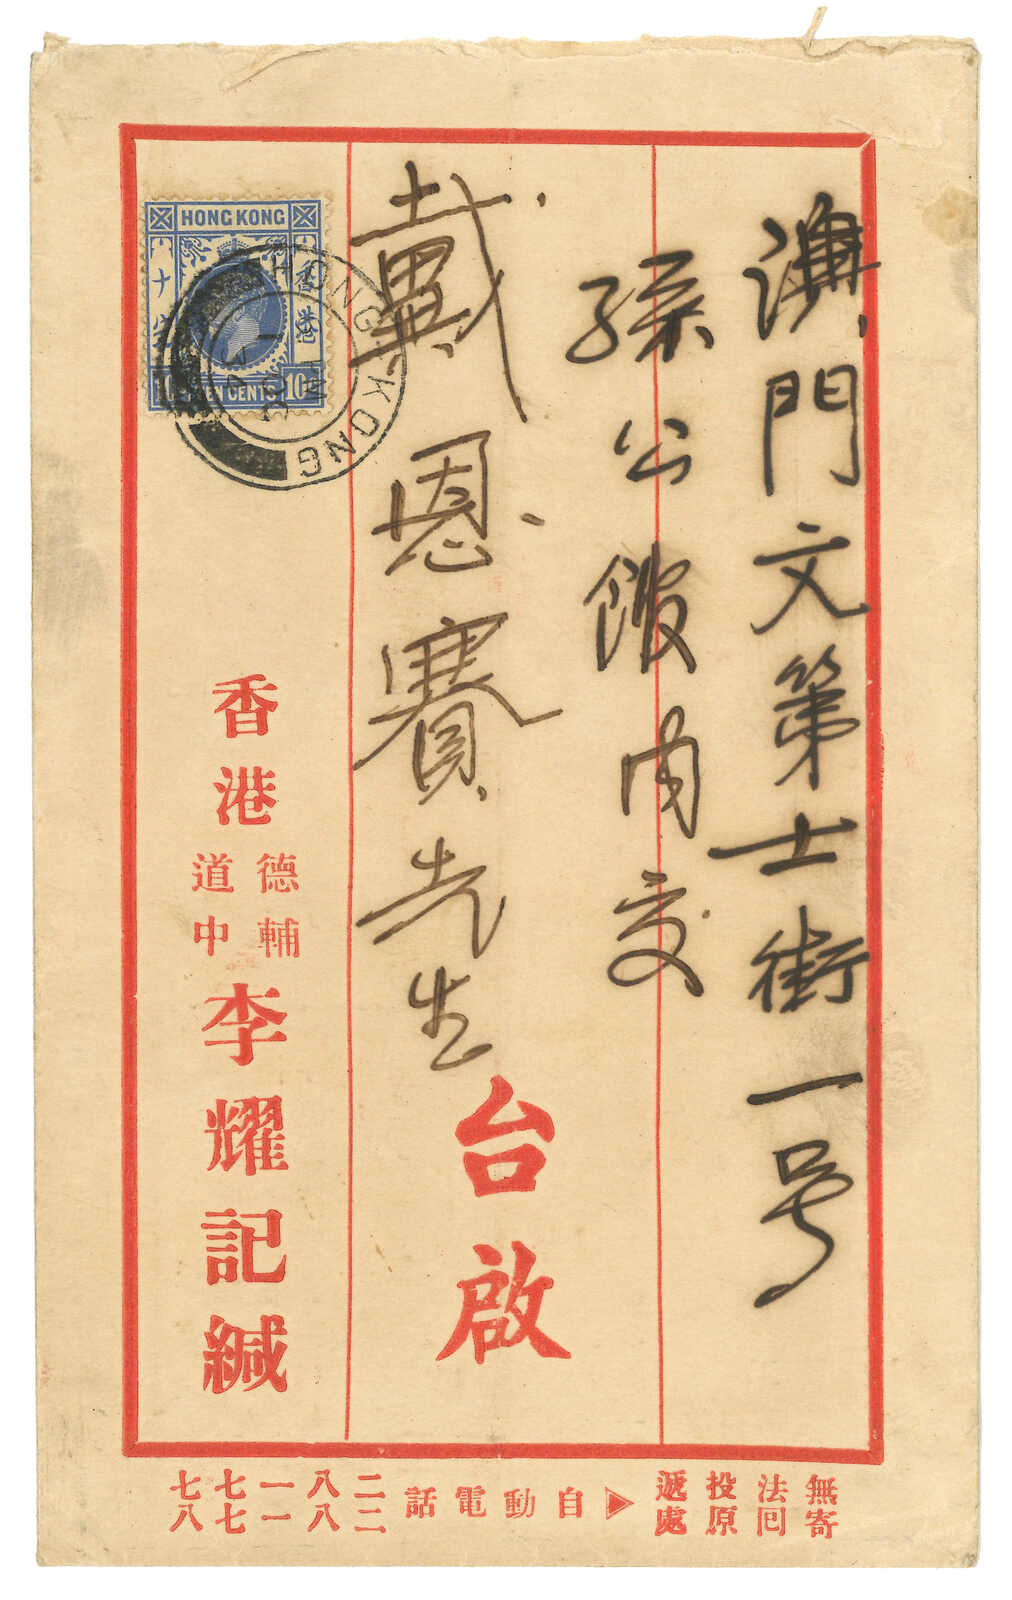 澳門文第士街一号
孫公館內交
戴恩賽先生
台啟
HONG KONG
香港
TEN CENTS
10
HONG KONG
香港
德輔
道中
李耀記緘
無法投遞
寄囘原處
自動電話
二八一七七
二八一七八